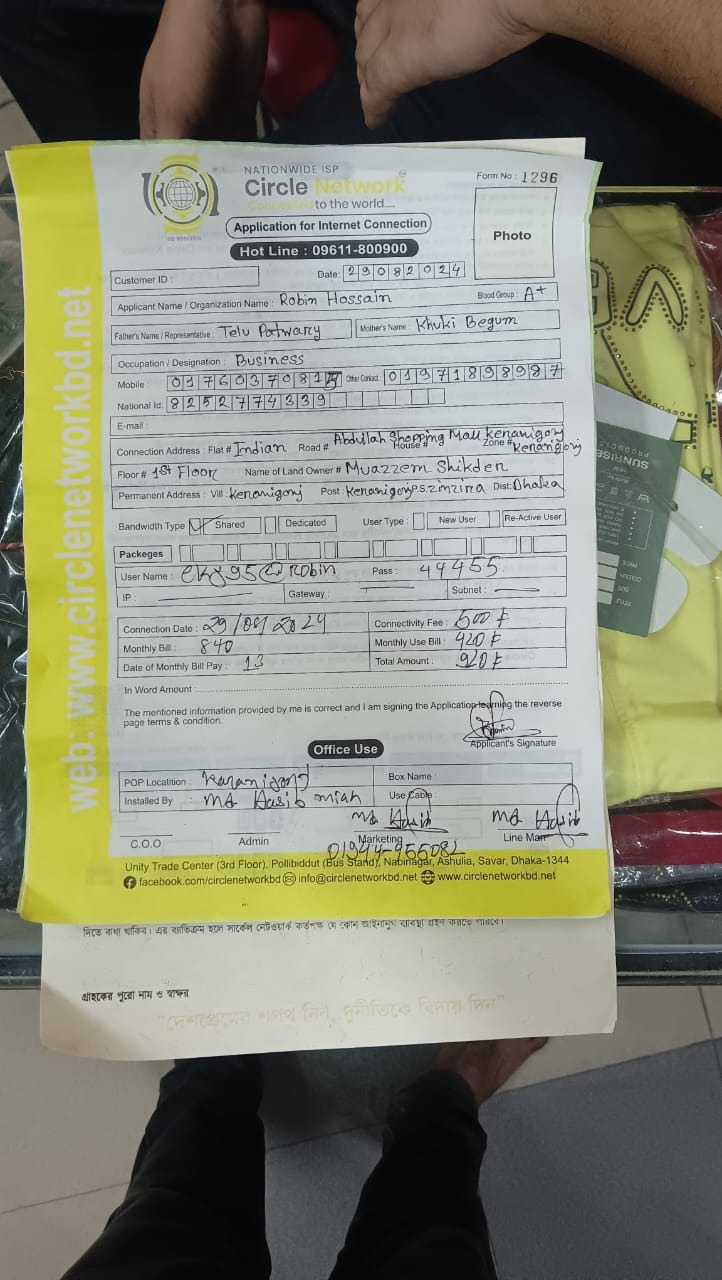 NATIONWIDE ISP
Circle Network
Connected to the world....
Form No : 1296
Application for Internet Connection
Hot Line : 09611-800900
Photo
Customer ID :
Date: 29082024
Applicant Name / Organization Name : Robin Hossain
Blood Group : A+
Father's Name / Representative : Telu Patwary
Mother's Name Khuki Begum
Occupation / Designation : Business
Mobile : 0176037081
Other Contact : 01971898987
National Id: 8252774339
E-mail :
Connection Address : Flat # Indian Road # Abdullah Shopping Mall House # Kenanigonj Zone # Kenanigonj
Floor # 1st Floor Name of Land Owner # Muazzem Shikden
Permanent Address : Vill : Kenanigonj Post : Kenanigonj P.S. Zinzina Dist: Dhaka
Bandwidth Type Shared Dedicated User Type : New User Re-Active User
Packeges
User Name : @Robin Pass : 44455
IP : Gateway : Subnet :
Connection Date : 29/08/2024 Connectivity Fee : 500 ৳
Monthly Bill : 840 Monthly Use Bill : 420 ৳
Date of Monthly Bill Pay : 13 Total Amount : 920 ৳
In Word Amount :
The mentioned information provided by me is correct and I am signing the Application learning the reverse
page terms & condition.
Applicant's Signature
Office Use
POP Locatition : Karanigond Box Name :
Installed By : Md Hasib miah Use Cable :
Md Hasib Md Hasib
C.O.O Admin Marketing Line Man
01944-955082
Unity Trade Center (3rd Floor), Pollibiddut (Bus Stand), Nabinagar, Ashulia, Savar, Dhaka-1344
facebook.com/circlenetworkbd info@circlenetworkbd.net www.circlenetworkbd.net
web: www.circlenetworkbd.net
দিতে বাধ্য থাকিব। এর ব্যতিক্রম হলে সার্কেল নেটওয়ার্ক কর্তৃপক্ষ যে কোন আইনানুগ ব্যবস্থা গ্রহন করতে পারবে।
গ্রাহকের পুরো নাম ও স্বাক্ষর
"দেশপ্রেমের শপথ নিন, দুর্নীতিকে বিদায় দিন"
SUNRISE
PRODUCT
PRICE
COLOUR
SIZE
STYLE